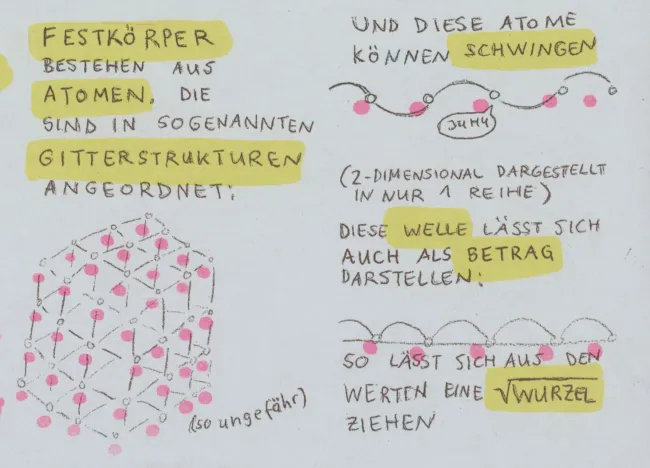 FESTKÖRPER
BESTEHEN AUS
ATOMEN, DIE
SIND IN SOGENANNTEN
GITTERSTRUKTUREN
ANGEORDNET:
(so ungefähr)
UND DIESE ATOME
KÖNNEN SCHWINGEN
JUHU
(2-DIMENSIONAL DARGESTELLT
IN NUR 1 REIHE)
DIESE WELLE LÄSST SICH
AUCH ALS BETRAG
DARSTELLEN:
SO LÄSST SICH AUS DEN
WERTEN EINE √WURZEL
ZIEHEN